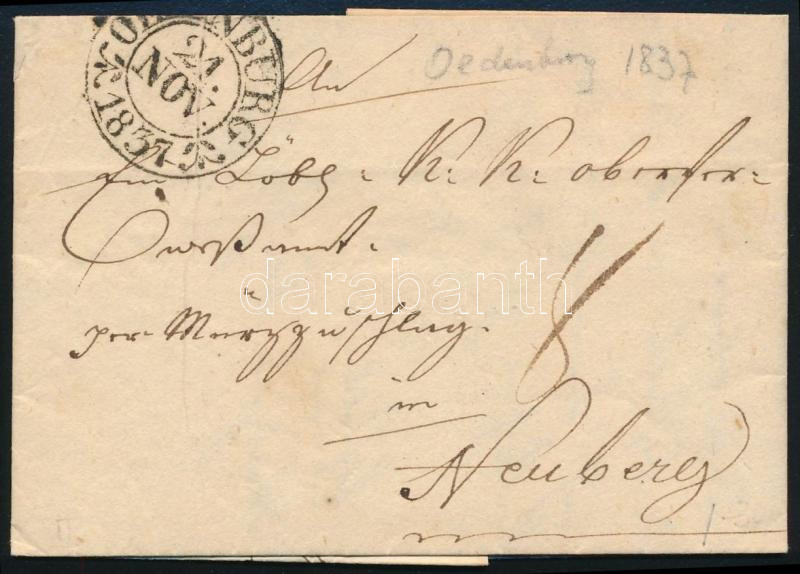 OEDENBURG
21.
NOV.
1837
Oedenburg 1837
An
Ein Löbl: K: K: oberfer=
Weßamt.
per Mürzzuschlag.
in
Neuberg
8
darabanth